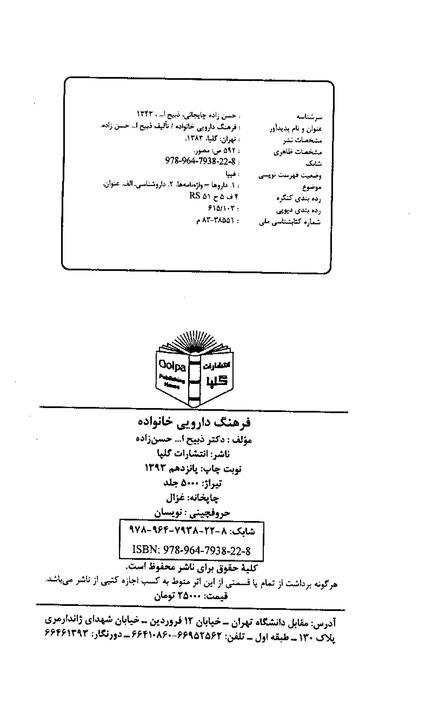 سرشناسه : حسن زاده چایجانی، ذبیح ا... ، ۱۳۴۳
عنوان و نام پدیدآور : فرهنگ دارویی خانواده / تألیف ذبیح ا... حسن زاده.
مشخصات نشر : تهران: گلپا، ۱۳۸۳.
مشخصات ظاهری : ۵۹۲ ص: مصور.
شابک : 978-964-7938-22-8
وضعیت فهرست نویسی : فیپا
موضوع : ۱. داروها – واژه‌نامه‌ها. ۲. داروشناسی. الف. عنوان.
رده بندی کنگره : ۴ ف ۵ ح ۵۱ RS
رده بندی دیویی : ۶۱۵/۱۰۳
شماره کتابشناسی ملی : ۳۸۵۵۱-۸۳ م
انتشارات گلپا
Golpa Publishing House
فرهنگ دارویی خانواده
مؤلف : دکتر ذبیح ا... حسن‌زاده
ناشر: انتشارات گلپا
نوبت چاپ: پانزدهم ۱۳۹۳
تیراژ: ۵۰۰۰ جلد
چاپخانه: غزال
حروفچینی : نویسان
شابک: ۸-۲۲-۷۹۳۸-۹۶۴-۹۷۸
ISBN: 978-964-7938-22-8
کلیهٔ حقوق برای ناشر محفوظ است.
هرگونه برداشت از تمام یا قسمتی از این اثر منوط به کسب اجازه کتبی از ناشر می‌باشد.
قیمت: ۲۵۰۰۰ تومان
آدرس: مقابل دانشگاه تهران – خیابان ۱۲ فروردین – خیابان شهدای ژاندارمری
پلاک ۱۳۰ – طبقه اول – تلفن: ۶۶۹۵۲۵۶۲-۶۶۴۱۰۸۶۰ – دورنگار: ۶۶۴۶۱۳۹۳